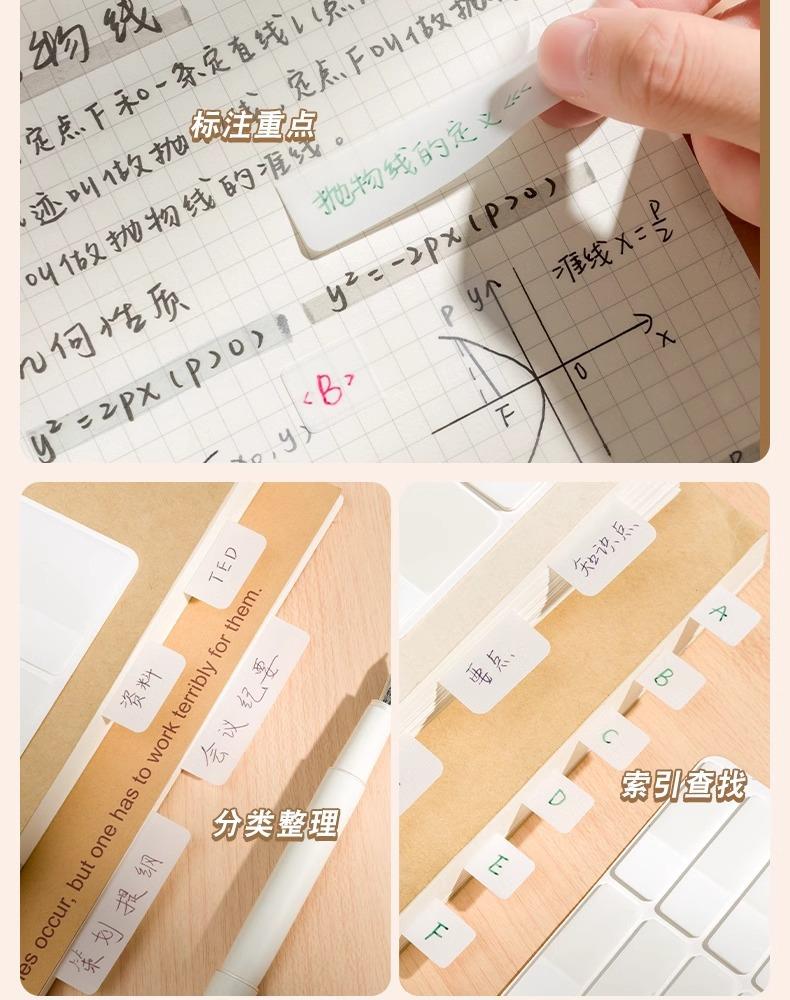 物线
定点F和一条定直线l(点
迹叫做抛物线,定点F叫做抛
叫做抛物线的准线。
标注重点
抛物线的定义<<<
几何性质
y²=-2px(p>0)
准线x=P/2
y²=2px(p>0)
<B>
P
y
x
O
F
x₀,y)
TED
资料
会议纪要
策划提纲
es occur, but one has to work terribly for them.
分类整理
知识点
要点
A
B
C
D
E
F
索引查找